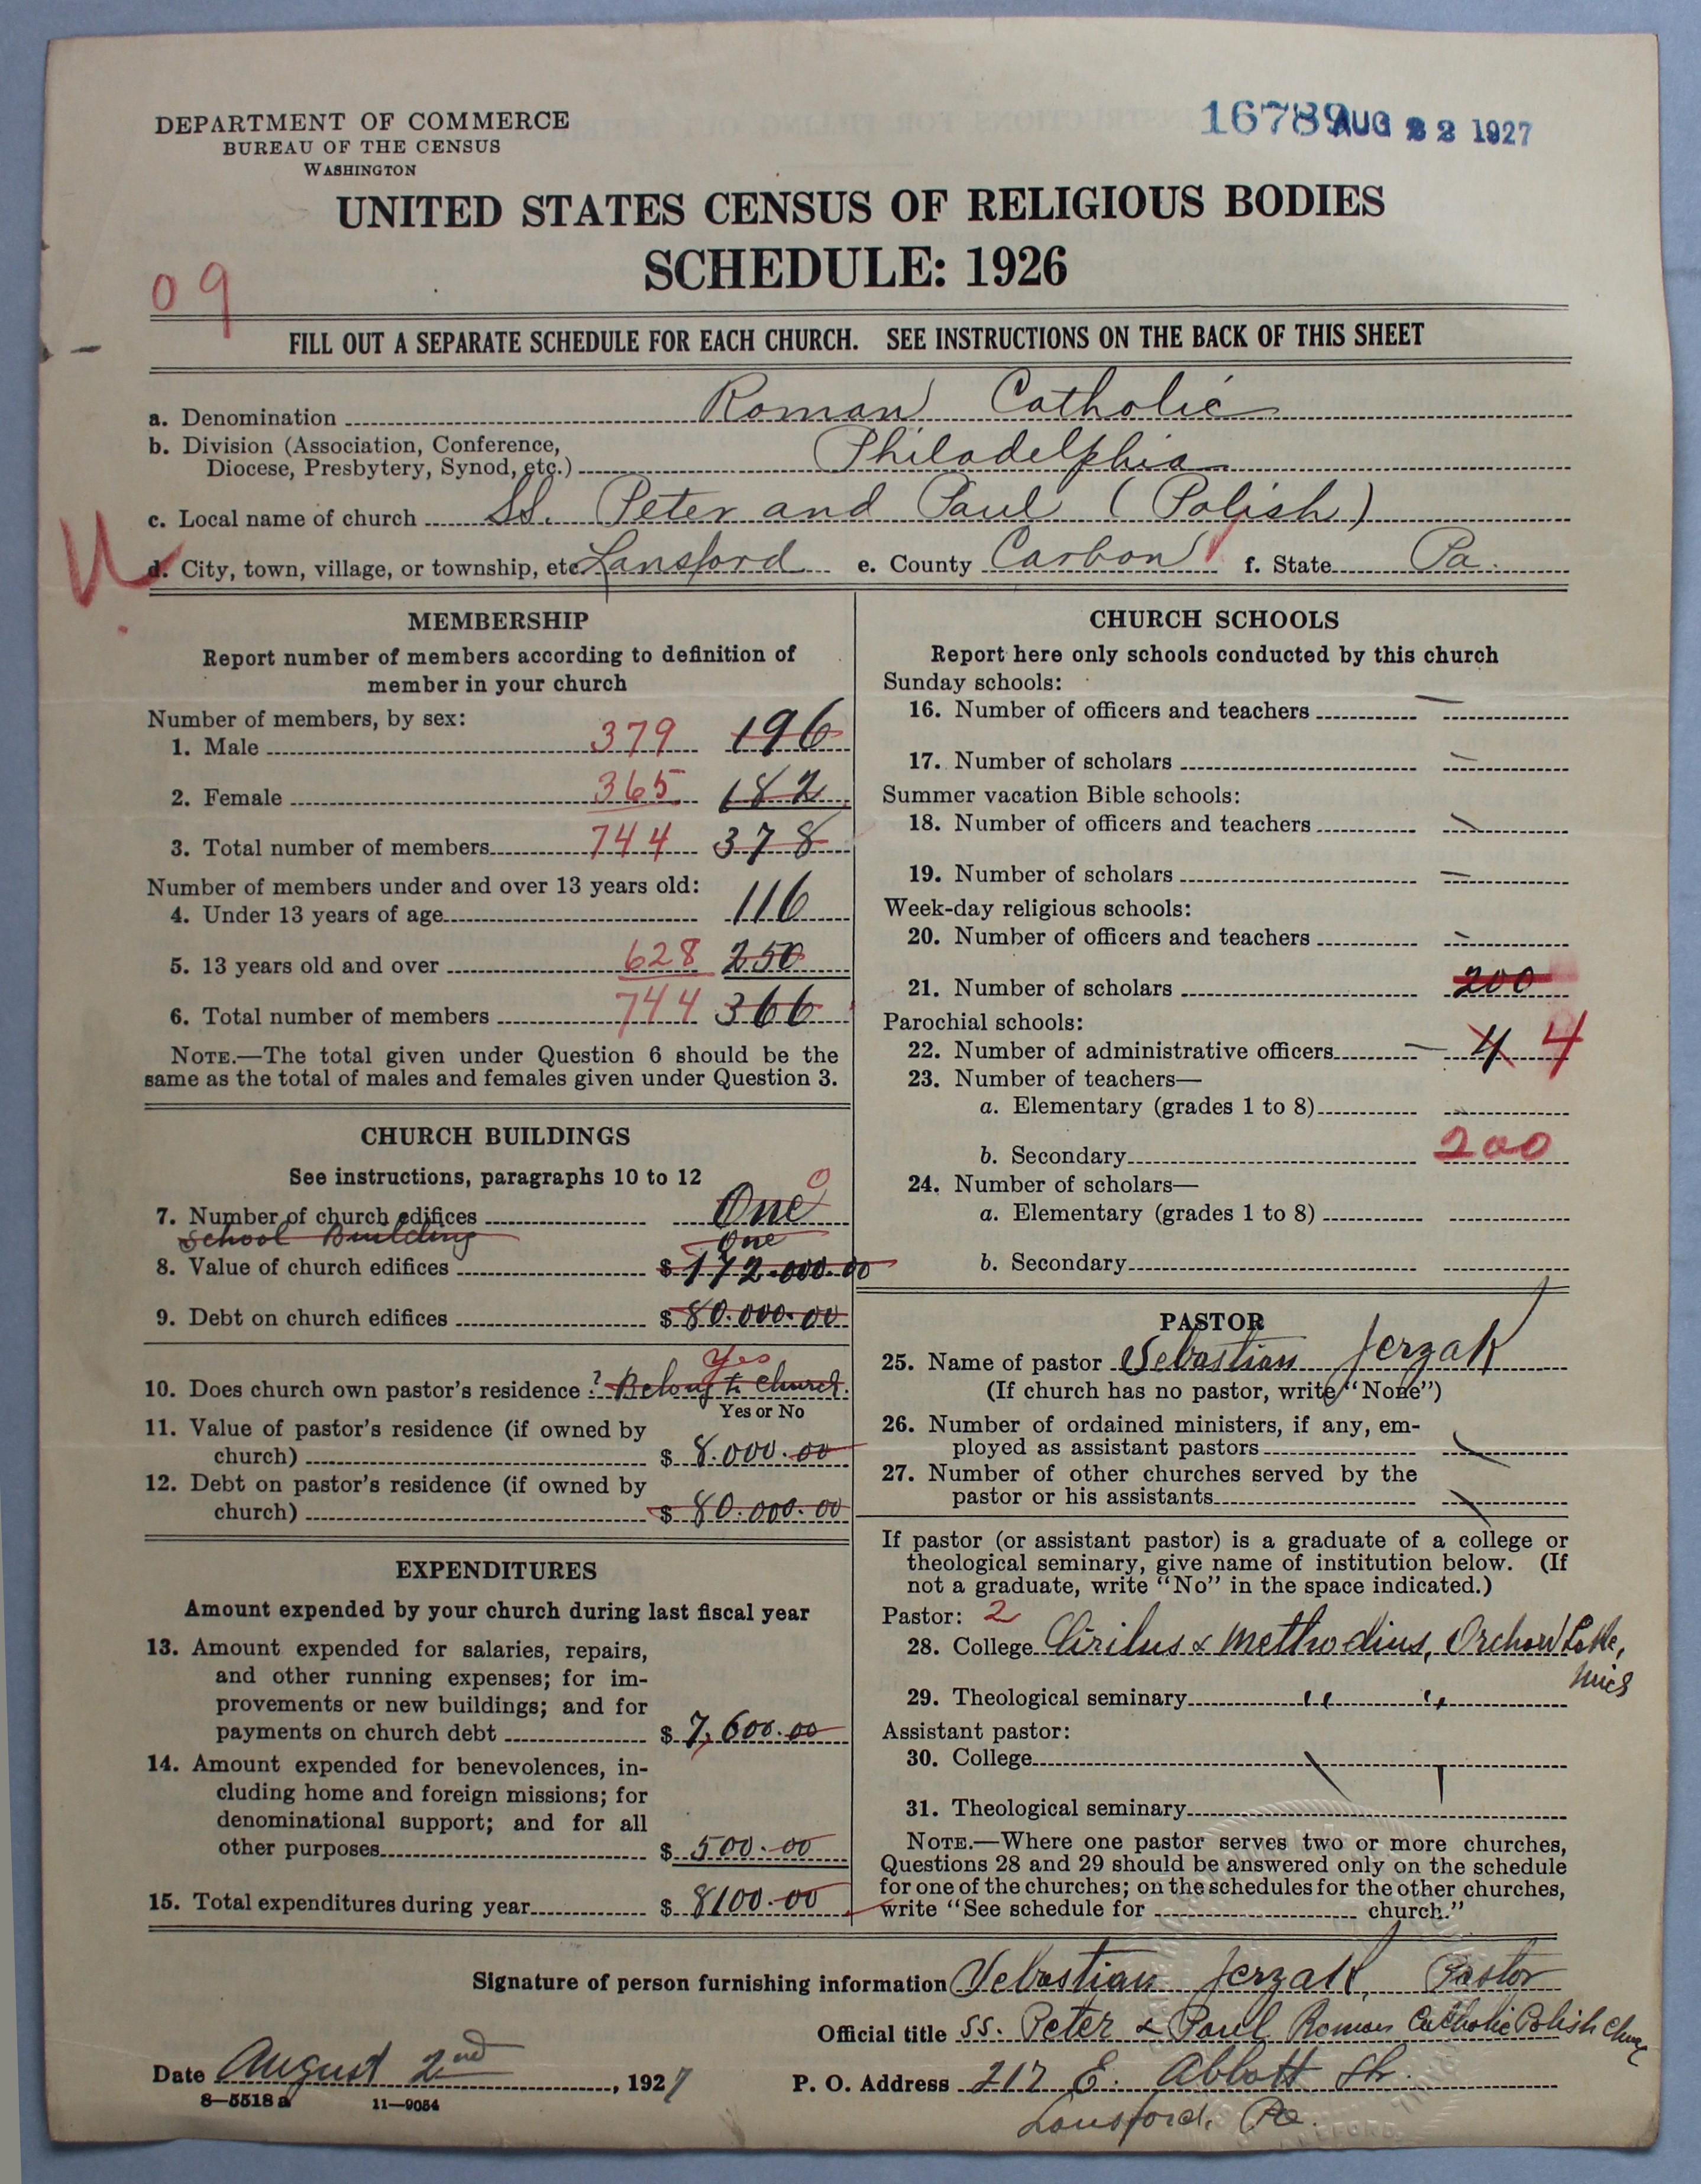 DEPARTMENT OF COMMERCE
BUREAU OF THE CENSUS
WASHINGTON
16789 AUG 22 1927
UNITED STATES CENSUS OF RELIGIOUS BODIES
SCHEDULE: 1926
09
FILL OUT A SEPARATE SCHEDULE FOR EACH CHURCH. SEE INSTRUCTIONS ON THE BACK OF THIS SHEET
a. Denomination Roman Catholic
b. Division (Association, Conference, Diocese, Presbytery, Synod, etc.) Philadelphia
c. Local name of church SS. Peter and Paul (Polish)
d. City, town, village, or township, etc. Lansford e. County Carbon f. State Pa.
MEMBERSHIP
Report number of members according to definition of
member in your church
Number of members, by sex:
1. Male 379 196
2. Female 365 182
3. Total number of members 744 378
Number of members under and over 13 years old:
4. Under 13 years of age 116
5. 13 years old and over 628 250
6. Total number of members 744 366
NOTE.—The total given under Question 6 should be the
same as the total of males and females given under Question 3.
CHURCH BUILDINGS
See instructions, paragraphs 10 to 12
7. Number of church edifices One 0
School Building One
8. Value of church edifices $ 172.000.00
9. Debt on church edifices $ 80.000.00
Yes
10. Does church own pastor's residence? Belong to church.
Yes or No
11. Value of pastor's residence (if owned by
church) $ 8.000.00
12. Debt on pastor's residence (if owned by
church) $ 80.000.00
EXPENDITURES
Amount expended by your church during last fiscal year
13. Amount expended for salaries, repairs,
and other running expenses; for im-
provements or new buildings; and for
payments on church debt $ 7,600.00
14. Amount expended for benevolences, in-
cluding home and foreign missions; for
denominational support; and for all
other purposes $ 500.00
15. Total expenditures during year $ 8100.00
CHURCH SCHOOLS
Report here only schools conducted by this church
Sunday schools:
16. Number of officers and teachers —
17. Number of scholars —
Summer vacation Bible schools:
18. Number of officers and teachers —
19. Number of scholars —
Week-day religious schools:
20. Number of officers and teachers —
21. Number of scholars 200
Parochial schools:
22. Number of administrative officers — 4 4
23. Number of teachers—
a. Elementary (grades 1 to 8)
b. Secondary 200
24. Number of scholars—
a. Elementary (grades 1 to 8)
b. Secondary
PASTOR
25. Name of pastor Sebastian Jerzak
(If church has no pastor, write "None")
26. Number of ordained ministers, if any, em-
ployed as assistant pastors
27. Number of other churches served by the
pastor or his assistants
If pastor (or assistant pastor) is a graduate of a college or
theological seminary, give name of institution below. (If
not a graduate, write "No" in the space indicated.)
Pastor: 2
28. College Cirilus & Methodius, Orchard Lake,
Mich
29. Theological seminary " "
Assistant pastor:
30. College
31. Theological seminary
NOTE.—Where one pastor serves two or more churches,
Questions 28 and 29 should be answered only on the schedule
for one of the churches; on the schedules for the other churches,
write "See schedule for church."
Signature of person furnishing information Sebastian Jerzak, Pastor
Official title SS. Peter & Paul Roman Catholic Polish
Date August 2nd, 1927 P. O. Address 217 E. Abbott Str.
8—5518 a 11—9054
Lansford, Pa.